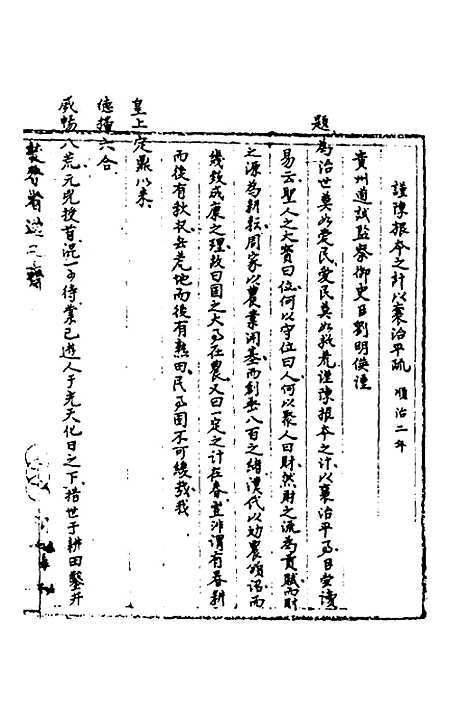 謹陳根本之計以襄治平疏 順治二年
貴州道試監察御史臣劉明偀謹
題為治世莫如愛民愛民莫如救荒謹陳根本之計以襄治平事臣嘗讀
易云聖人之大寶曰位何以守位曰人何以聚人曰財然財之流為貢賦而財
之源為耕耘周家以農業開基而創垂八百之緒漢代以劝農頒詔而
幾致成康之理故曰國之大事在農又曰一定之計在春豈非謂有春耕
而後有秋収去荒地而後有熟田民事固不可緩哉我
皇上定鼎以來
德播六合
威暢八荒元兇授首混一可待業已遊人于光天化日之下措世于耕田鑿井